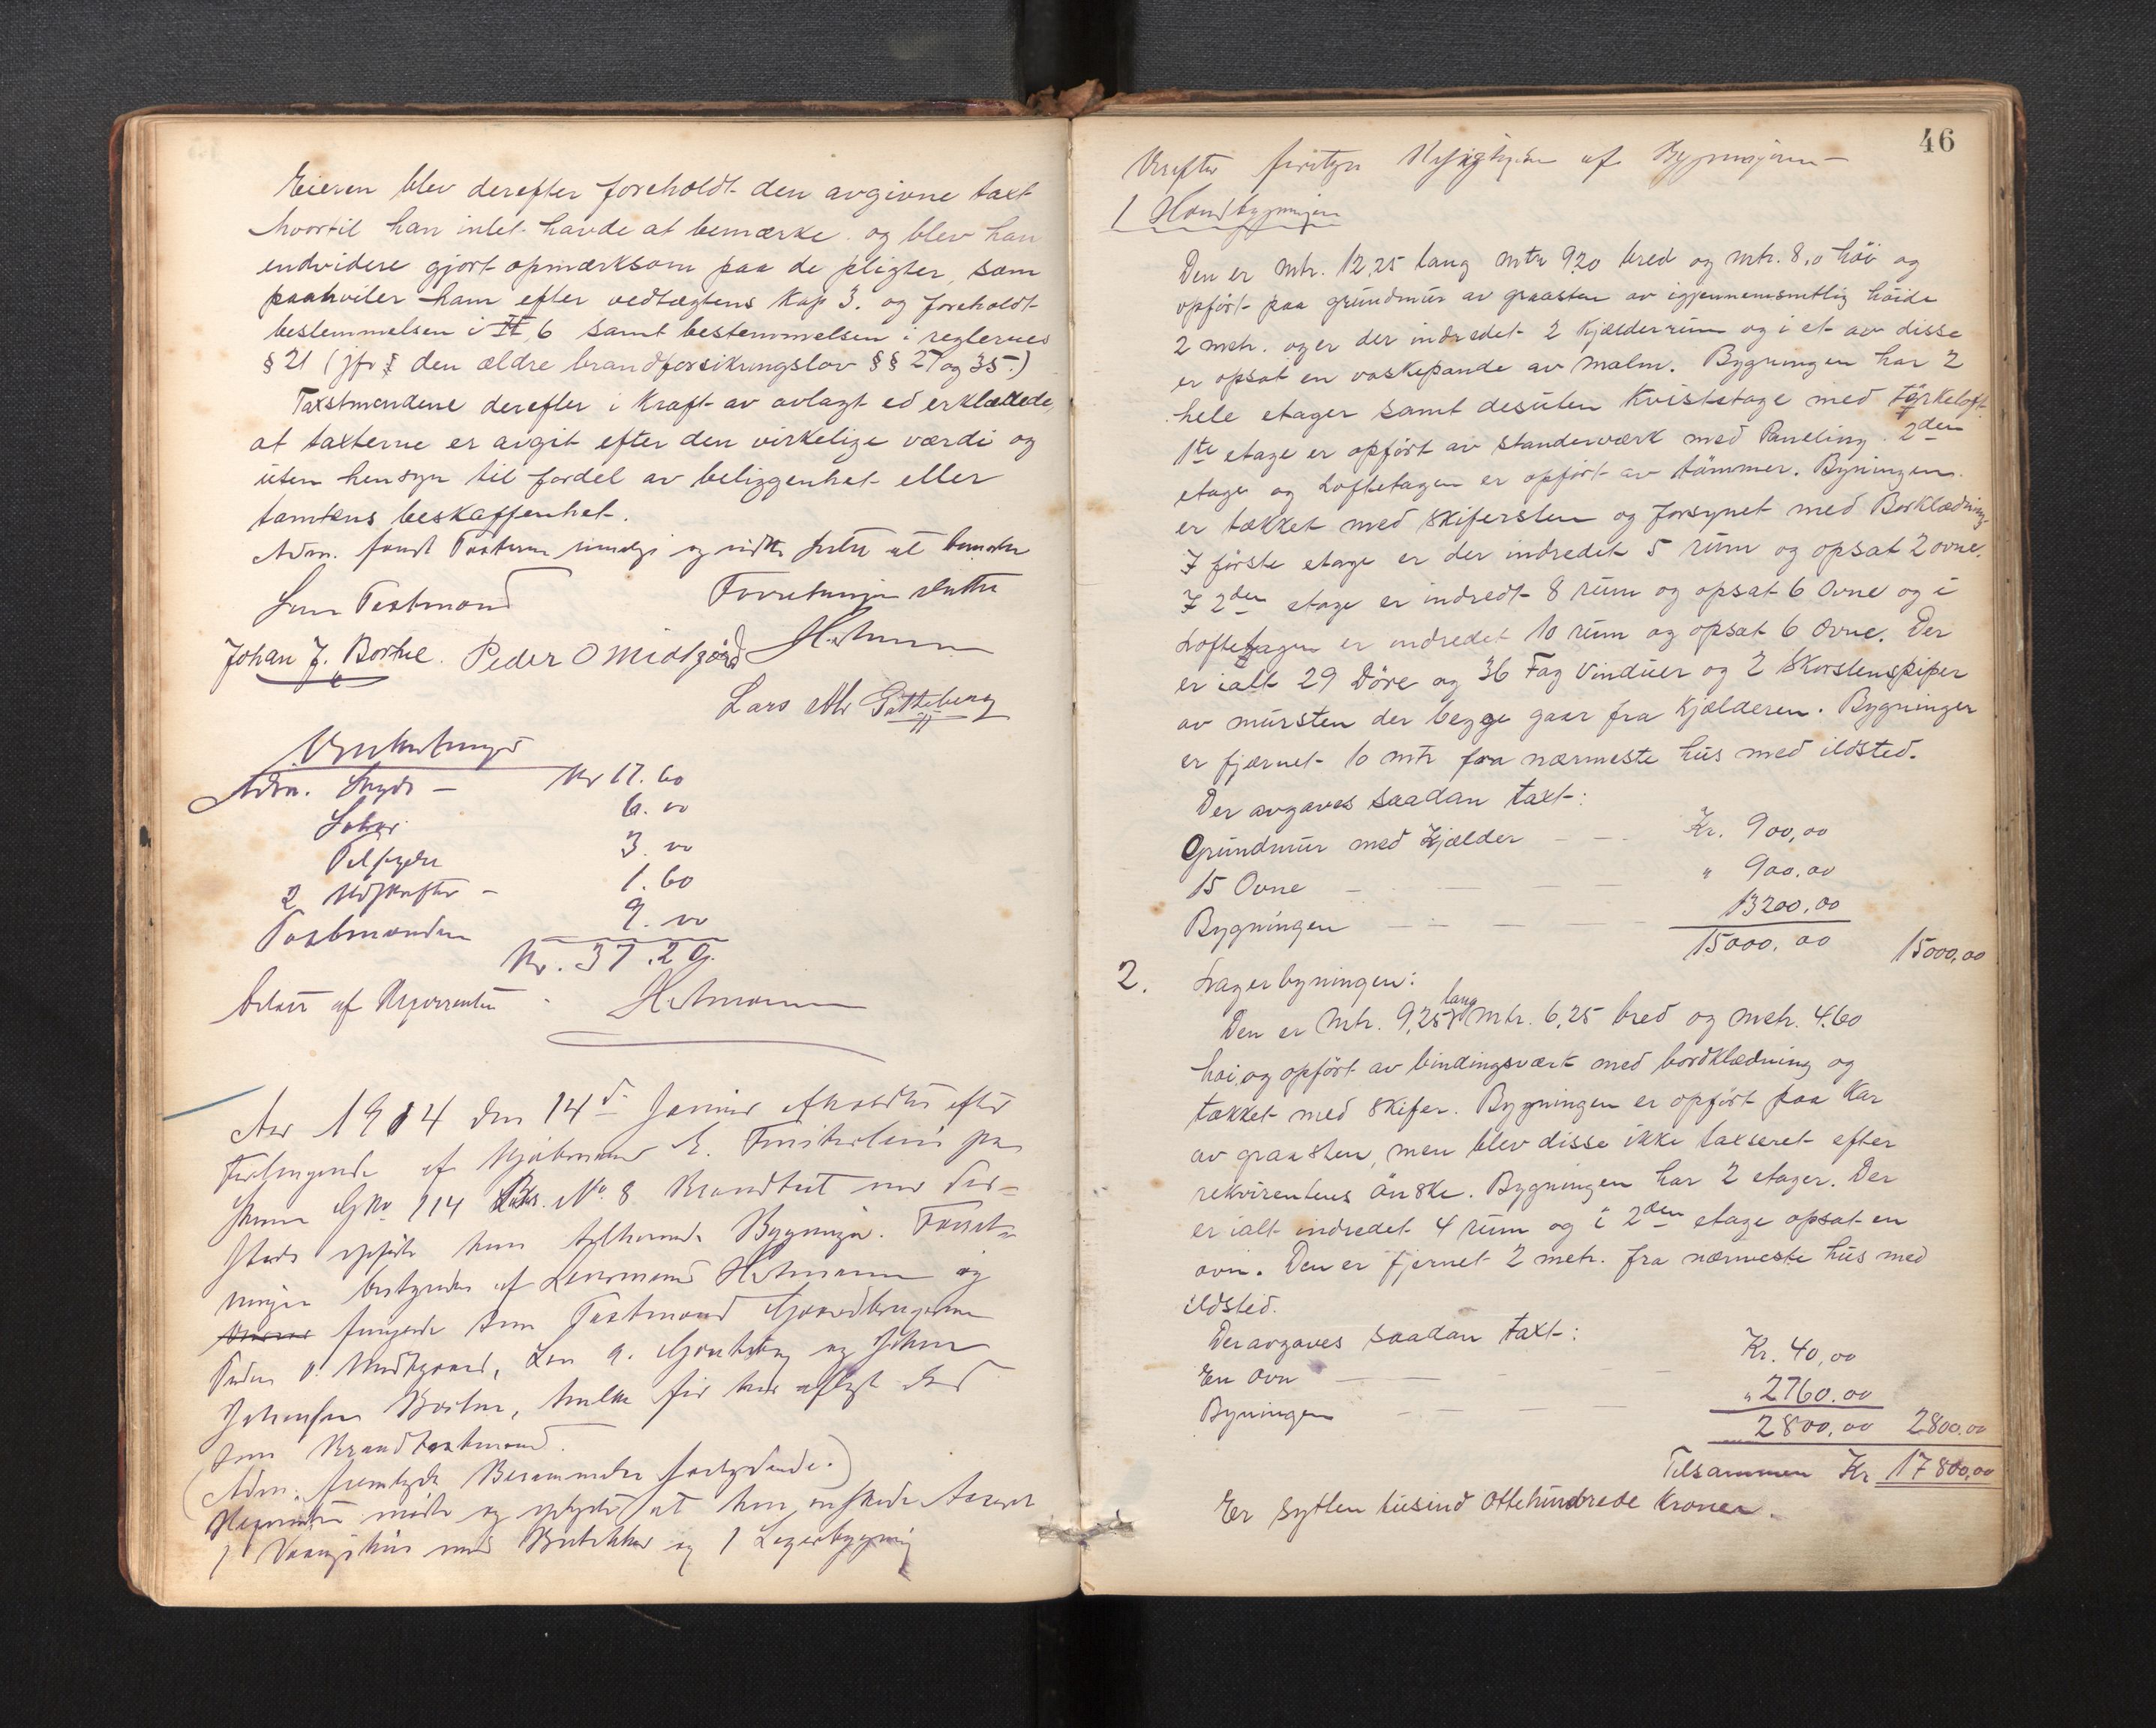 Eieren blev derefter foreholdt den avgivne taxt
hvortil han intet havde at bemærke og blev han
endvidere gjort opmærksom paa de pligter, som
paahviler ham efter vedtægtens Kap 3. og foreholdt
bestemmelsen i II, 6 samt bestemmelsen i reglernes
§ 21 (jfr § den ældre brandforsikringslov §§ 27 og 35.)
Taxstmændene derefter i Kraft av avlagt ed erklærede,
at taxterne er avgit efter den virkelige værdi og
uten hensyn til fordel av beliggenhet eller
tomtens beskaffenhet.
Adm. fandt Taxterne rimelige og vidste intet at bemærke
Som Taxtmænd Forretningen sluttet
Johan J. Bortne. Peder O Midtgård H.
Lars
Adm. Skyds — Kr 17.60
6.00
3.00
2 Udskrifter — 1.60
Taxtmændene 9.00
Kr. 37.20
betalt af Rekvirenten
Aar 1914 den 14d Januar afholdtes efter
Forlangende af Kjøbmand E. paa
Gno 114 Bno. No. 8 Brandtaxt over der-
steds opførte ham tilhørende Bygninger. Forret-
ningen bestyredes af Lensmand og
fungerede som Taxtmænd Gaardbrugerne
Peder O. Midtgaard, Lars A. og Johan
Johansen Bortne, hvilke før har aflagt Ed
som Brandtaxtmænd.
(Adm. fremlagde Berammelse forkyndende.)
Rekvirenten mødte og oplyste at han ønskede taxeret
1 Vaaningshus med Butikker og 1 Lagerbygning
46
Derefter foretoges Besigtigelse af Bygningerne —
1 Hovedbygningen
Den er mtr. 12,25 lang mtr 9,20 bred og mtr. 8,0 høi og
opført paa grundmur av graasten av igjennemsnitlig høide
2 metr. og er der indredet 2 Kjælderrum og i et av disse
er opsat en vaskepande av malm. Bygningen har 2
hele etager samt desuten Kvistetage med tørkeloft.
1ste etage er opført av standerværk med Paneling. 2den
etage og Loftetagen er opført av tømmer. Byningen
er tækket med Skifersten og forsynet med Bordklædning
I første etage er der indredet 5 rum og opsat 2 ovne.
I 2den etage er indredt 8 rum og opsat 6 Ovne og i
Loftetagen er indredet 10 rum og opsat 6 Ovne. Der
er ialt 29 Døre og 36 Fag Vinduer og 2 Skorstenspiper
av mursten der begge gaar fra Kjælderen. Bygningen
er fjærnet 10 mtr fra nærmeste hus med ildsted.
Der avgaves saadan taxt:
Grundmur med Kjælder — — Kr. 900,00
15 Ovne — — — — " 900.00
Bygningen — — — — 13200.00
15000.00 15000,00
2. Lagerbyningen:
Den er Mtr. 9,25 lang Mtr. 6,25 bred og metr. 4.60
høi og opført av bindingsværk med bordklædning og
tækket med Skifer. Bygningen er opført paa Kar
av graasten, men blev disse ikke taxseret efter
rekvirentens ønske. Bygningen har 2 etager. Der
er ialt indredet 4 rum og i 2den etage opsat en
ovn. Den er fjernet 2 metr. fra nærmeste hus med
ildsted.
Der avgaves saadan taxt:
En Ovn — — — — Kr. 40,00
Byningen — — — — " 2760.00
2800,00 2800.00
Tilsammen Kr 17800,00
Er Sytten tusind Ottehundrede Kroner.